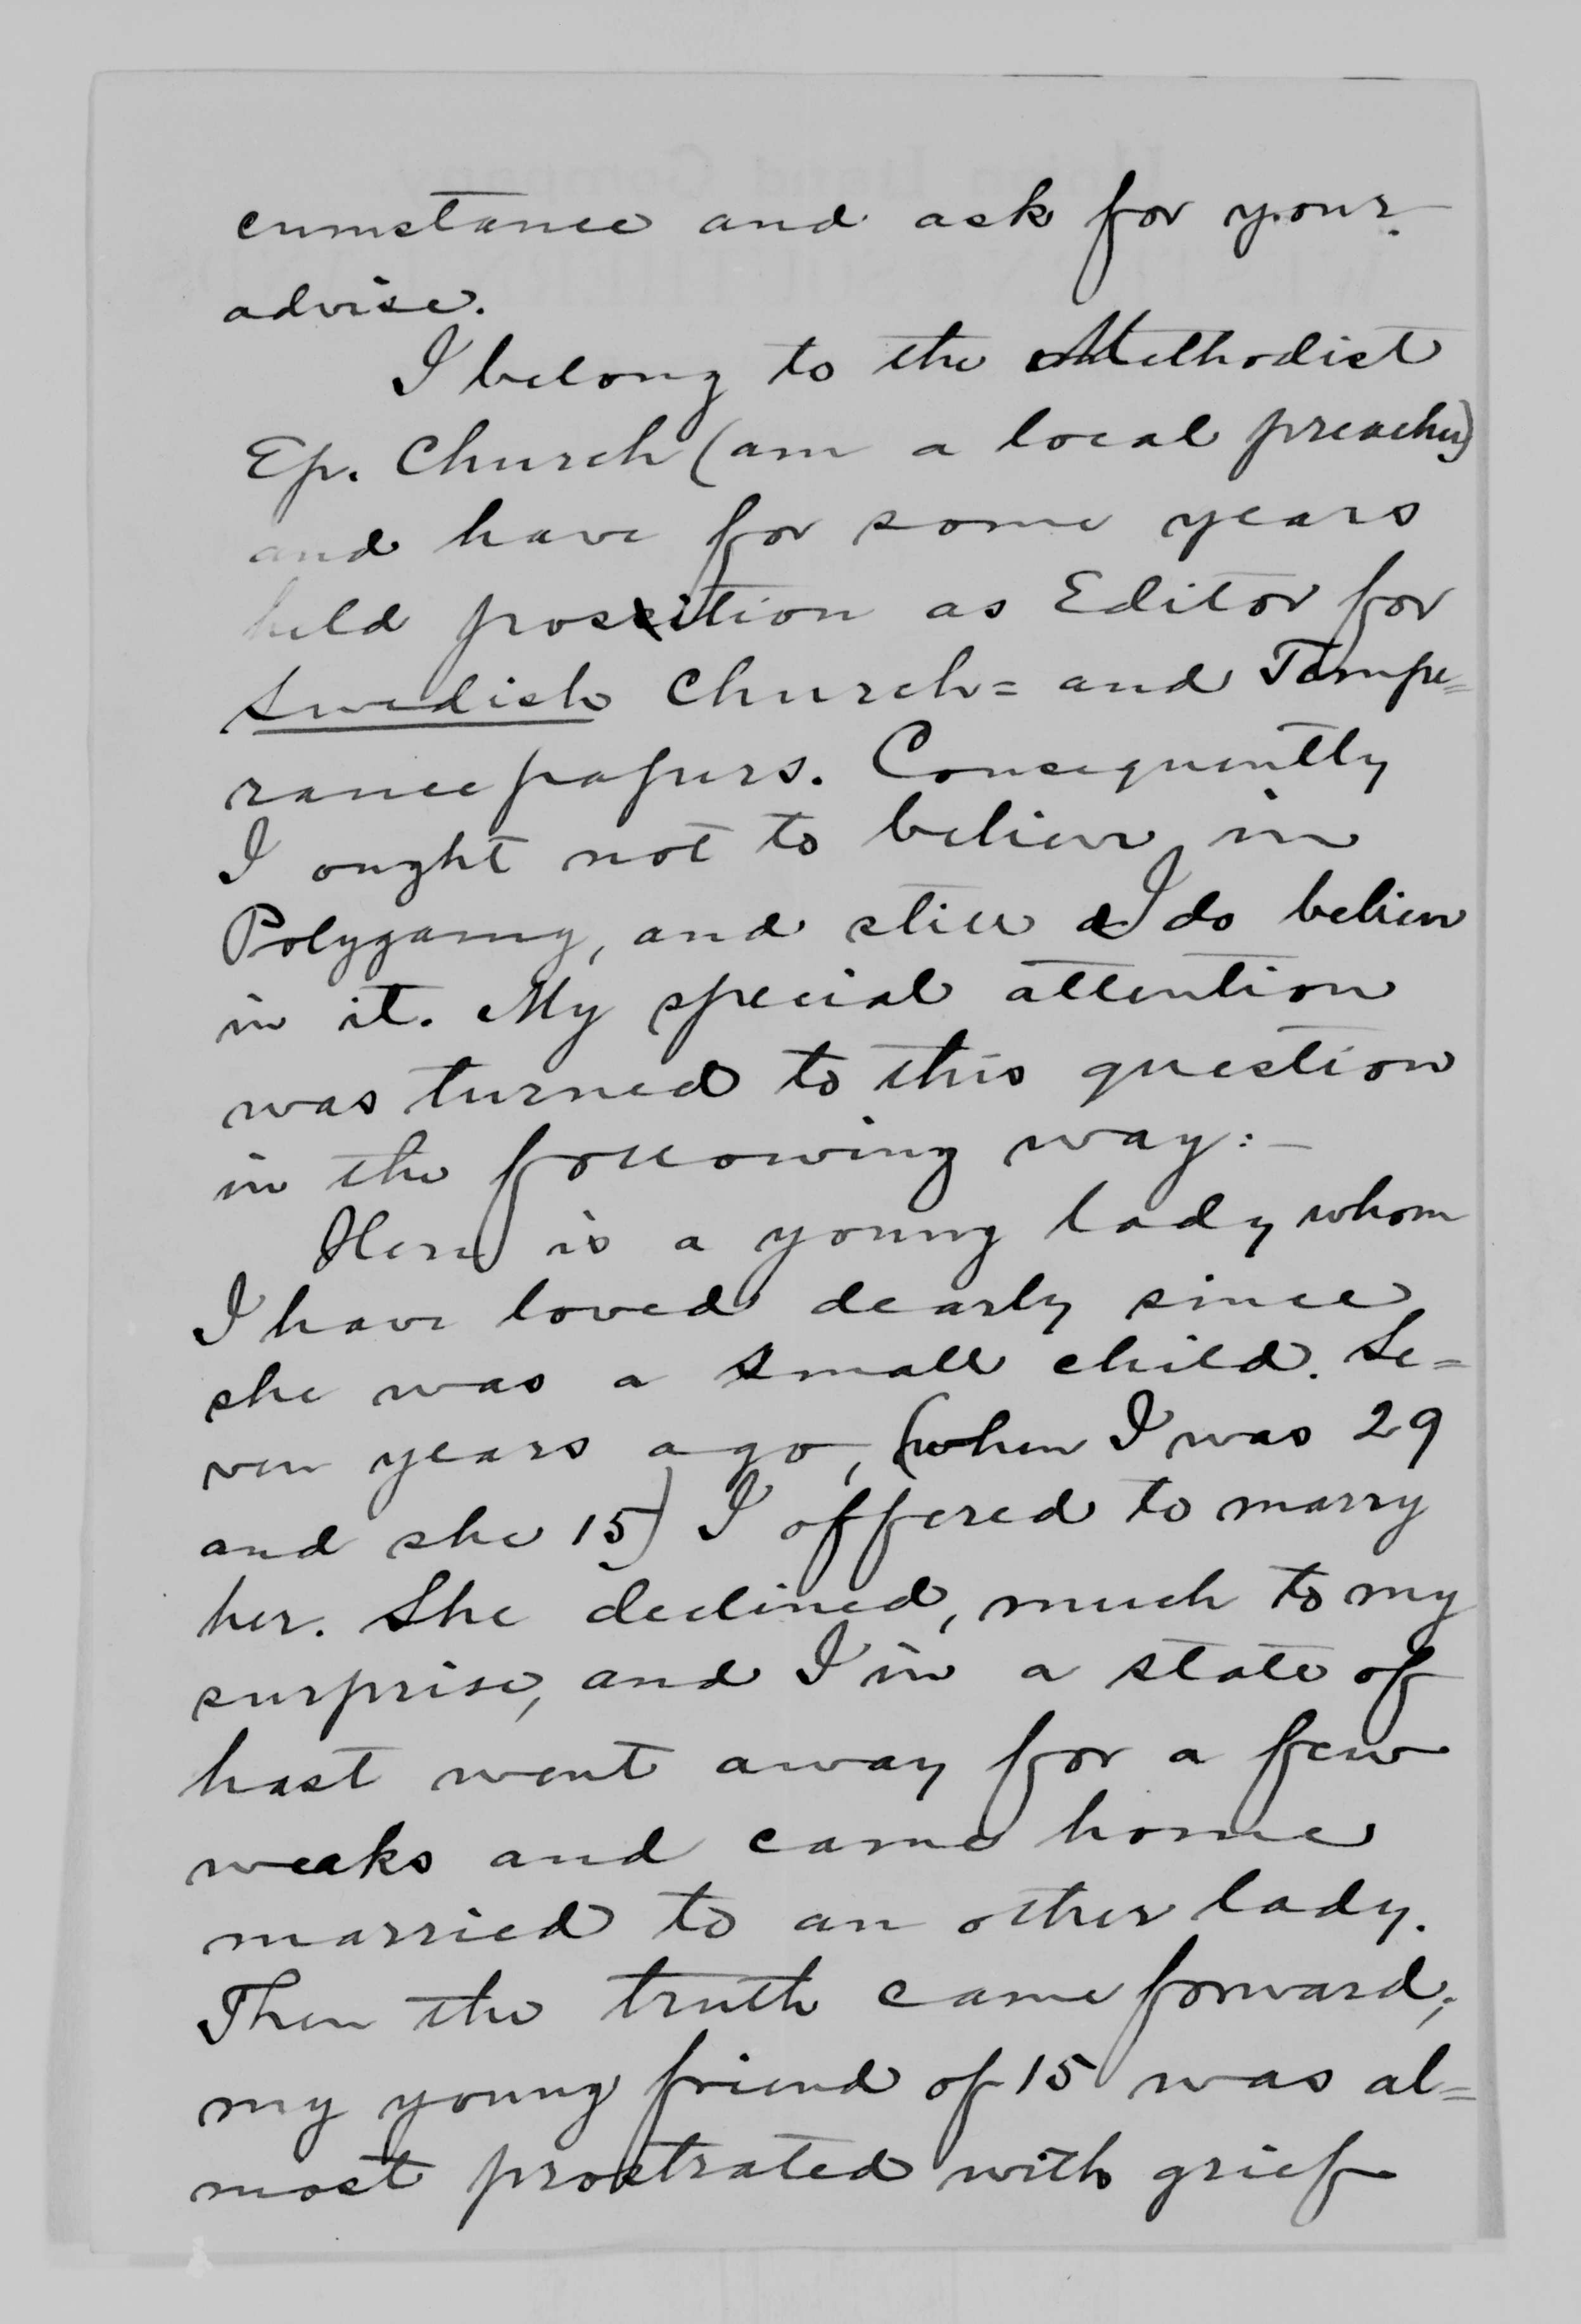 cumstance and ask for your
advise.
I belong to the Methodist
Ep. Church (am a local preacher)
and have for some years
held position as Editor for
Swedish Church= and Tempe=
rance papers. Consequently
I ought not to believe in
Polygamy, and still I do believe
in it. My special attention
was turned to this question
in the following way:—
Here is a young lady whom
I have loved dearly since
she was a small child. Se=
ven years ago, (when I was 29
and she 15) I offered to marry
her. She declined, much to my
surprise, and I in a state of
hast went away for a few
weaks and came home
married to an other lady.
Then the truth came forward;
my young friend of 15 was al=
most prostrated with grief